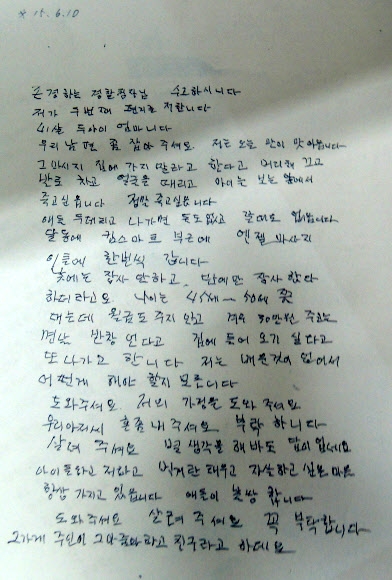 15.6.10
존경하는 경찰청장님 수고하십니다
제가 두번째 편지로 전합니다
41살 두아이 엄마 니다
우리 남편 좀 잡아 주세요. 저는 오늘 많이 맞아읍니다
그마사지 집에 가지 말라고 한다고 머리채 끄고
발로 차고 얼굴을 때리고 아이는 보는 앞에서
죽고싶읍니다 정말 죽고싶읍니다
애는 두데리고 나가면 돈도없고 갈데도 없읍니다
달동에 킴스마트 부근에 엔젤 마사지
이틀에 한번씩 갑니다
낮에는 장사 안하고, 밤에만 장사 한다
하더라고요. 나이는 45세~ 50세 쯧
대는데 월급도 주지 안고 겨우 30만원 주고는
집에 들어 오기 싫다고
또 나가고 합니다 저는 배운것이 없어서
어떤게 해야 할지 모릅니다
도와주세요. 저의 가정을 도와 주세요
우리아저씨 혼좀 내 주세요. 부탁 하니다
살려 주세요 별 생각을 해 바도 답이 없네요
아이들하고 저하고 번개탄 태우고 자살하고 싶은 마음
항상 가지고 있읍니다 애들이 불쌍 합니다
도와주세요 살려 주세요 꼭 부탁합니다
그가게 주인이 그아줌마하고 친구라고 하데요